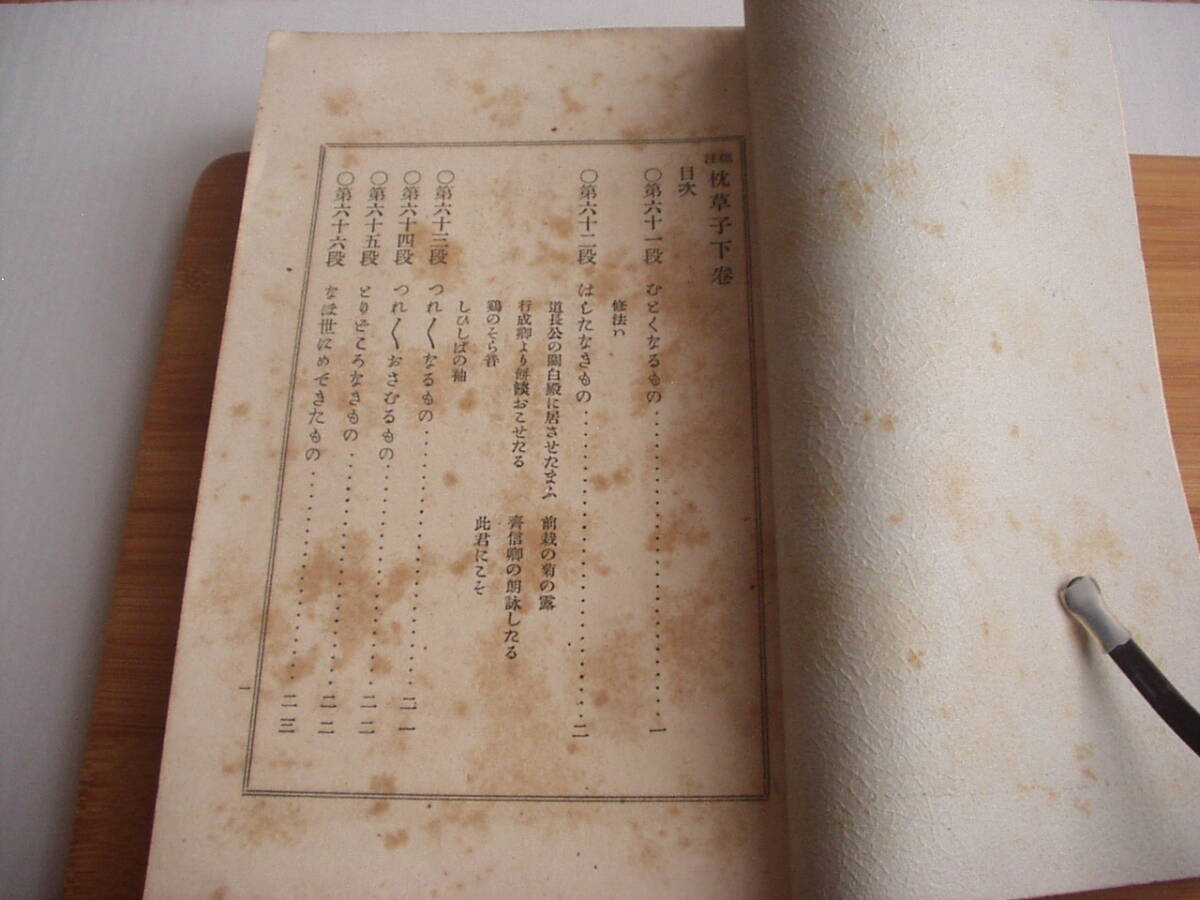 標注 枕草子下卷
目次
〇第六十一段 むとくなるもの 一
修法ハ
〇第六十二段 はしたなきもの 二
道長公の關白殿に居させたまふ 前栽の菊の露
行成卿より餅餤おこせたる 齊信卿の朗詠したる
鷄のそら音 此君にこそ
しひしばの袖
〇第六十三段 つれ〴〵なるもの 二一
〇第六十四段 つれ〴〵おさむるもの 二二
〇第六十五段 とりどころなきもの 二二
〇第六十六段 なほ世にめでたきもの 二三
一